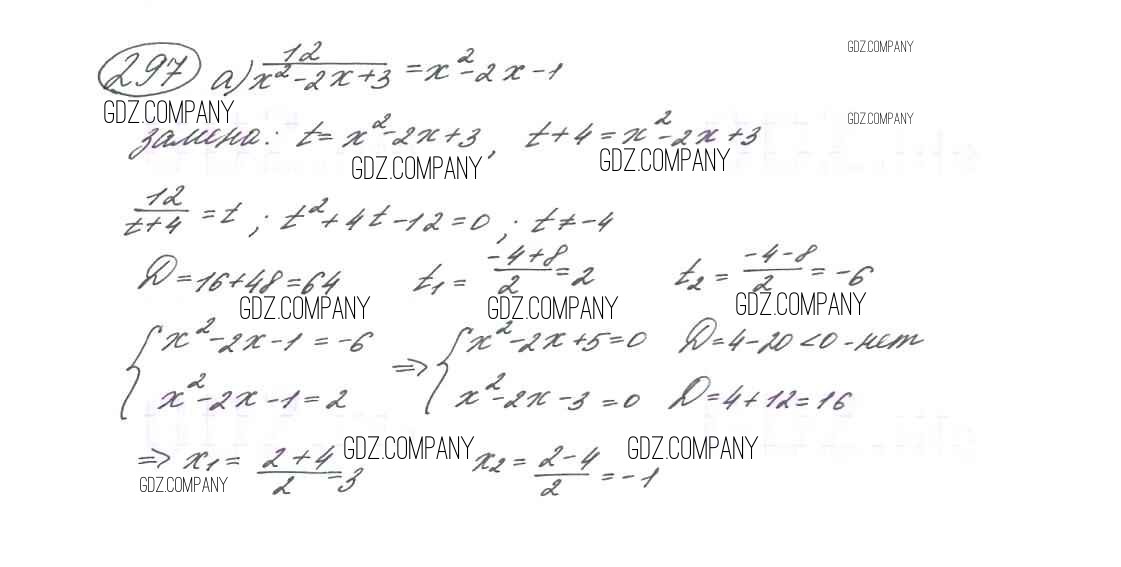 297 а) 12/(x²-2x+3) = x²-2x-1
GDZ.COMPANY
GDZ.COMPANY
замена: t = x²-2x+3, t+4 = x²-2x+3
GDZ.COMPANY
GDZ.COMPANY GDZ.COMPANY
12/(t+4) = t ; t²+4t-12=0 ; t≠-4
D=16+48=64 t₁ = (-4+8)/2 = 2 t₂ = (-4-8)/2 = -6
GDZ.COMPANY GDZ.COMPANY GDZ.COMPANY
{ x²-2x-1 = -6 => { x²-2x+5=0 D=4-20<0-нет
x²-2x-1=2 x²-2x-3=0 D=4+12=16
GDZ.COMPANY GDZ.COMPANY
=> x₁ = (2+4)/2 = 3 x₂ = (2-4)/2 = -1
GDZ.COMPANY